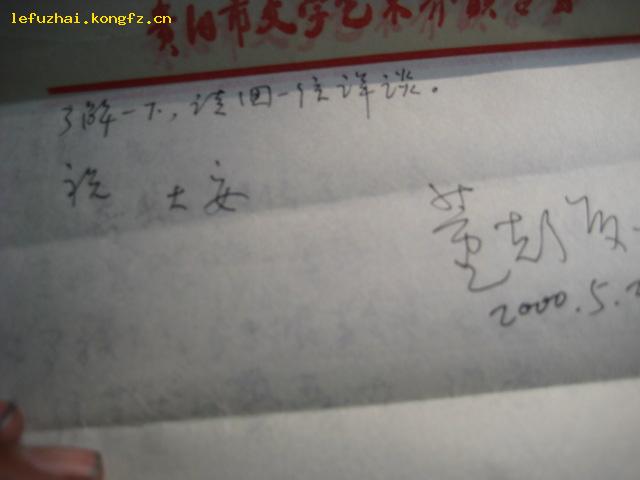 lefuzhai.kongfz.cn
贵阳市文学艺术界联合会
了解一下,请回一信详谈。
祝 大安
董
2000.5.2